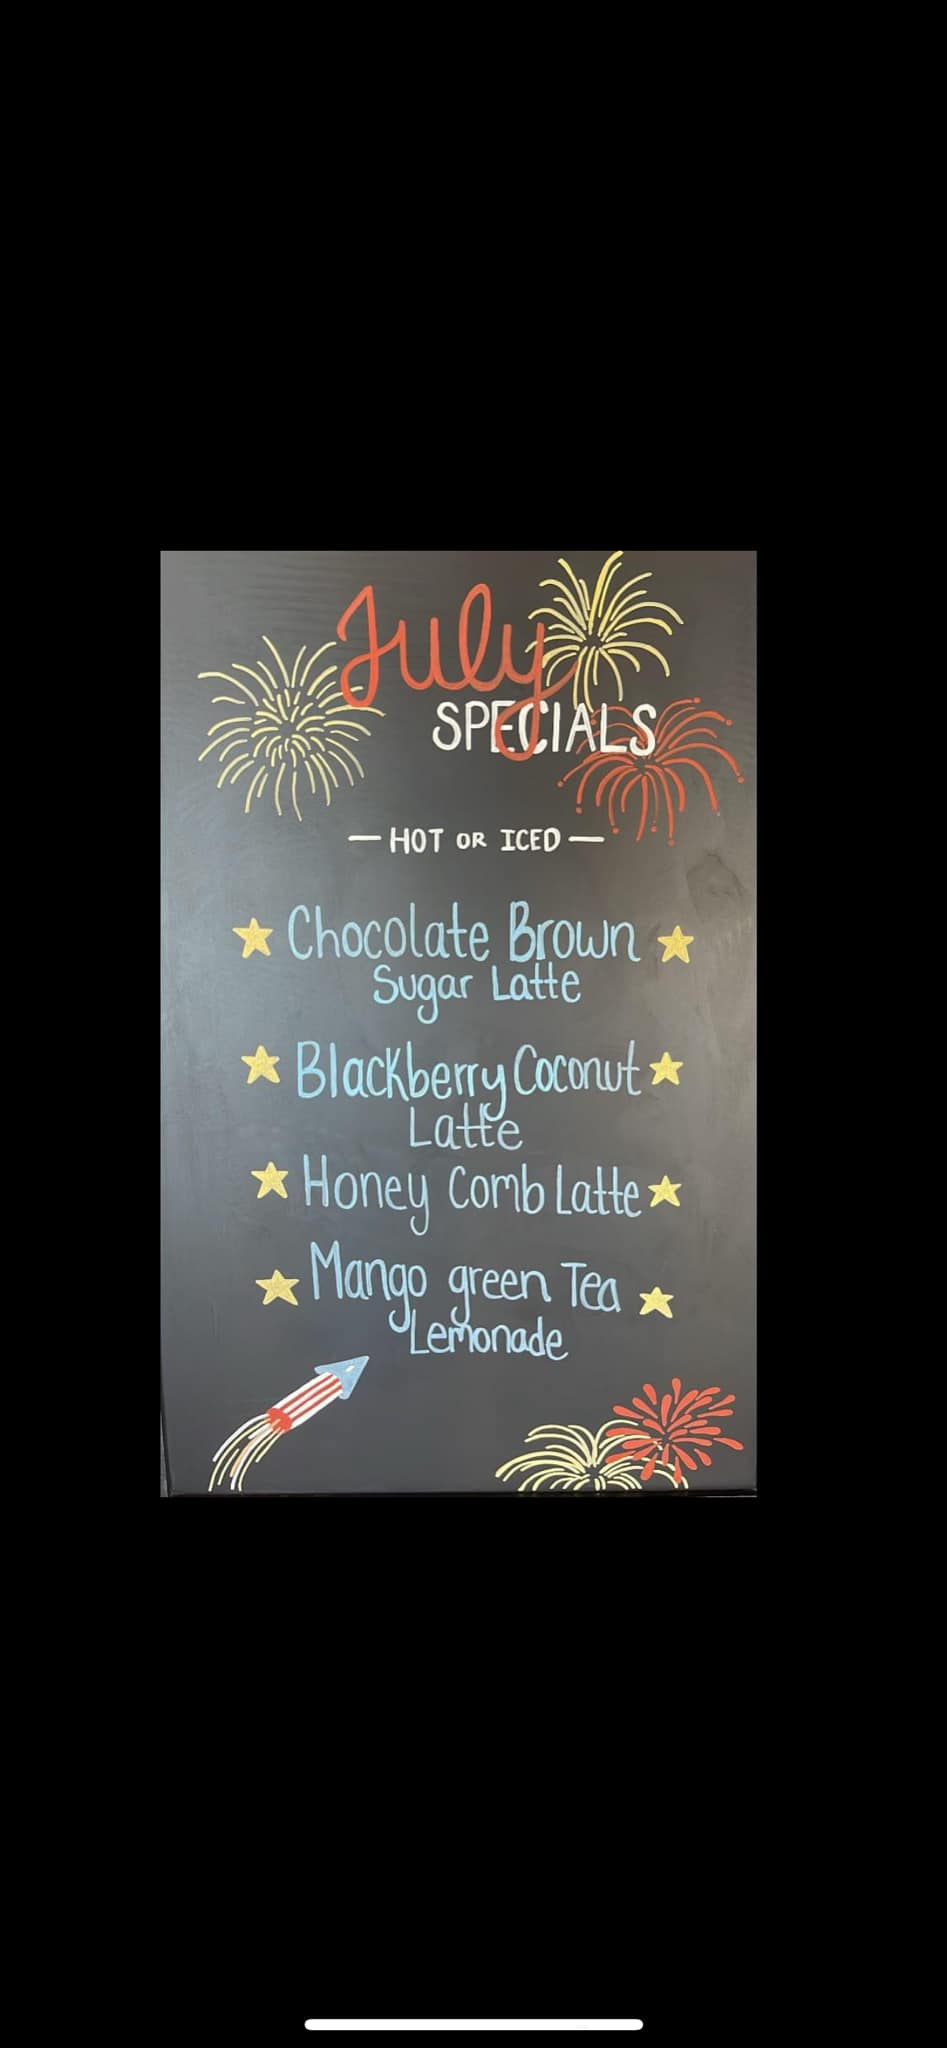 July
SPECIALS
— HOT OR ICED —
Chocolate Brown
Sugar Latte
Blackberry Coconut
Latte
Honey Comb Latte
Mango green Tea
Lemonade